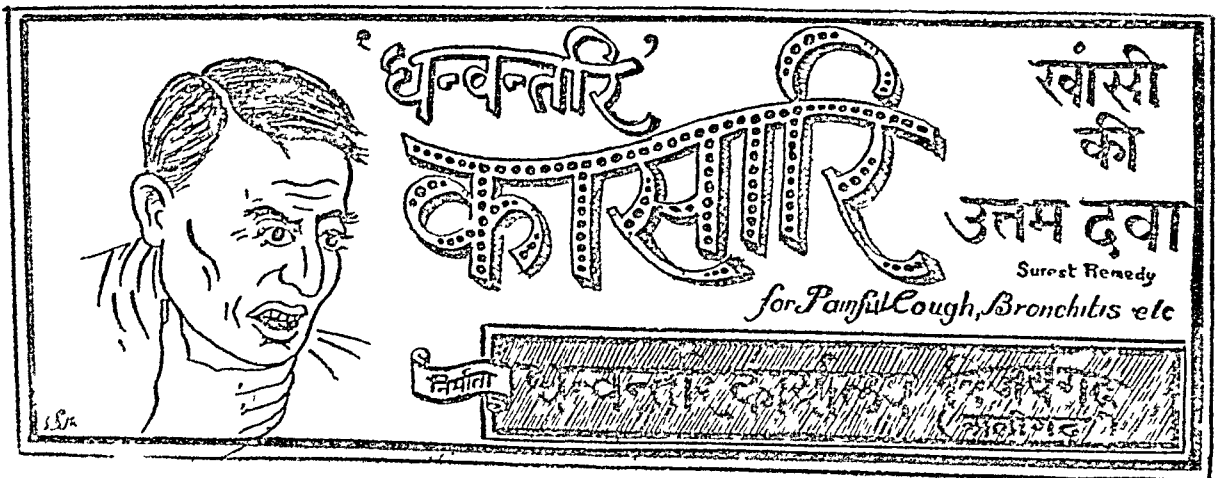 ‘धन्वन्तरि’
कासारि
खांसी
की
उत्तम दवा
Surest Remedy
for Painful Cough, Bronchitis etc
निर्माता
धन्वन्तरि कार्यालय